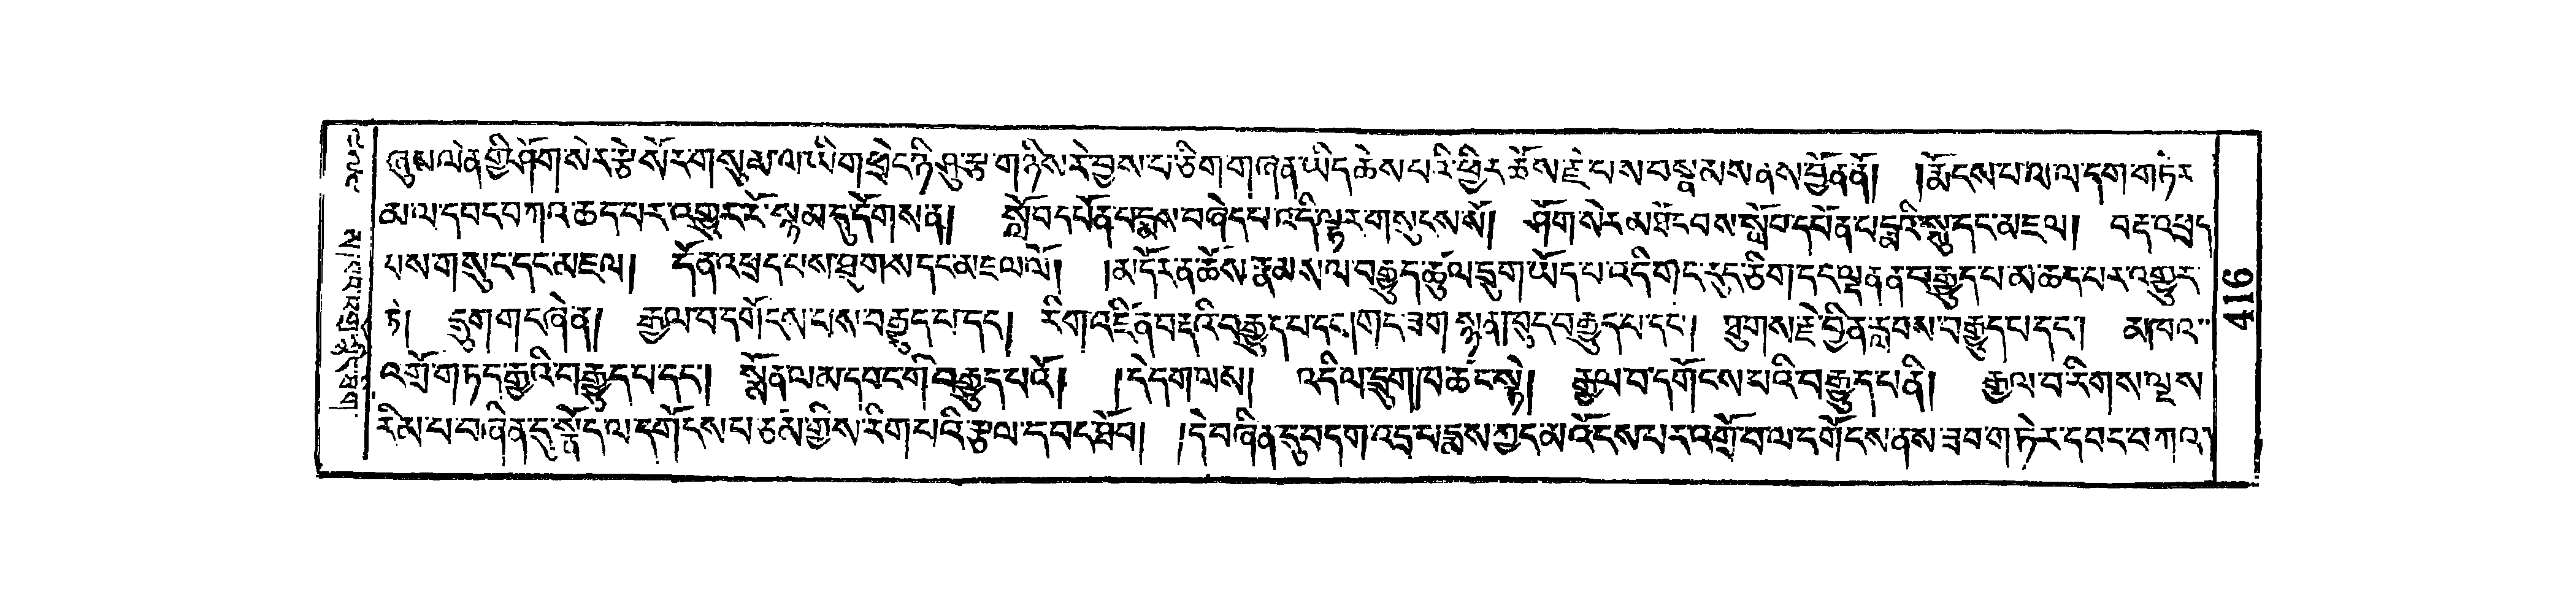 ཞུམ་ལེན་གྱི་ཤོག་སེར་རྩེ་སོར་གསུམ་ལ་ཡིག་ཕྲེང་ཉི་ཤུ་རྩ་གཉིས་རེ་བྱས་པ་ཅིག་གཞན་ཡིད་ཆེས་པ་རི་ཕྱིར་ཆོས་རྗེ་པས་བསྣམས་ནས་བྱོན་ནོ། །རྨོངས་པ་ལ་ལ་དག་གཏེར
མ་ལ་དབང་བཀའ་ཆད་པར་འགྱུར་རོ་སྙམ་དུ་དོགས་ན། སློབ་དཔོན་པདྨས་བཞེད་པ་འདི་ལྟར་གསུངས་སོ། ཤོག་སེར་མཐོང་བས་སློབ་དཔོན་པདྨའི་སྐུ་དང་མཇལ། བརྡ་འཕྲད
པས་གསུང་དང་མཇལ། དོན་འཕྲད་པས་ཐུགས་དང་མཇལ་ལོ། །མ་དོར་ན་ཆོས་རྣམས་ལ་བརྒྱུད་ཚུལ་དྲུག་ཡོད་པ་འདི་གང་རུང་ཅིག་དང་ལྡན་ན་བརྒྱུད་པ་མ་ཆད་པར་འགྱུར
ཏེ། དྲུག་གང་ཞེ་ན། རྒྱལ་བ་དགོངས་པས་བརྒྱུད་པ་དང༌། རིག་འཛིན་བརྡའི་བརྒྱུད་པ་དང༌། གང་ཟག་སྙན་ཁུང་བརྒྱུད་པ་དང༌། ཐུགས་རྗེ་བྱིན་རླབས་བརྒྱུད་པ་དང༌། མཁའ་
འགྲོ་གཏད་རྒྱའི་བརྒྱུད་པ་དང༌། སྨོན་ལམ་དབང་གི་བརྒྱུད་པའོ། །དེ་དག་ལས། འདི་ལ་དྲུག་ཁ་ཚང་སྟེ། རྒྱལ་བ་དགོངས་པའི་བརྒྱུད་པ་ནི། རྒྱལ་བ་རིགས་ལྔས
རིམ་པ་བཞིན་དུ་སྣོད་ལ་དགོངས་པ་ཙམ་གྱིས་རིག་པའི་རྩལ་དབང་ཐོབ། །དེ་བཞིན་དུ་བདག་འདྲ་པདྨས་ཀྱང་མ་འོངས་པར་འགྲོ་བ་ལ་དགོངས་ནས་ཟབ་གཏེར་དབང་བཀའ
419